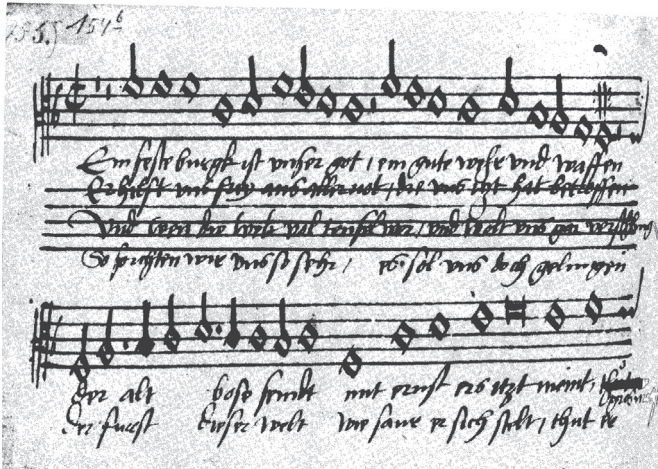 1546
Ein feste burgk ist unser got, ein gute wehr und waffen
Er hilft uns frey aus aller not, die uns itzt hat betroffen
Und wen die welt vol teufel wer, und wolt uns gar
So furchten wir uns so sehr, es sol uns doch gelingen
der alt bose feindt mit ernst ers itzt meint,
der furst dieser welt wie saur er sich stelt, thut er